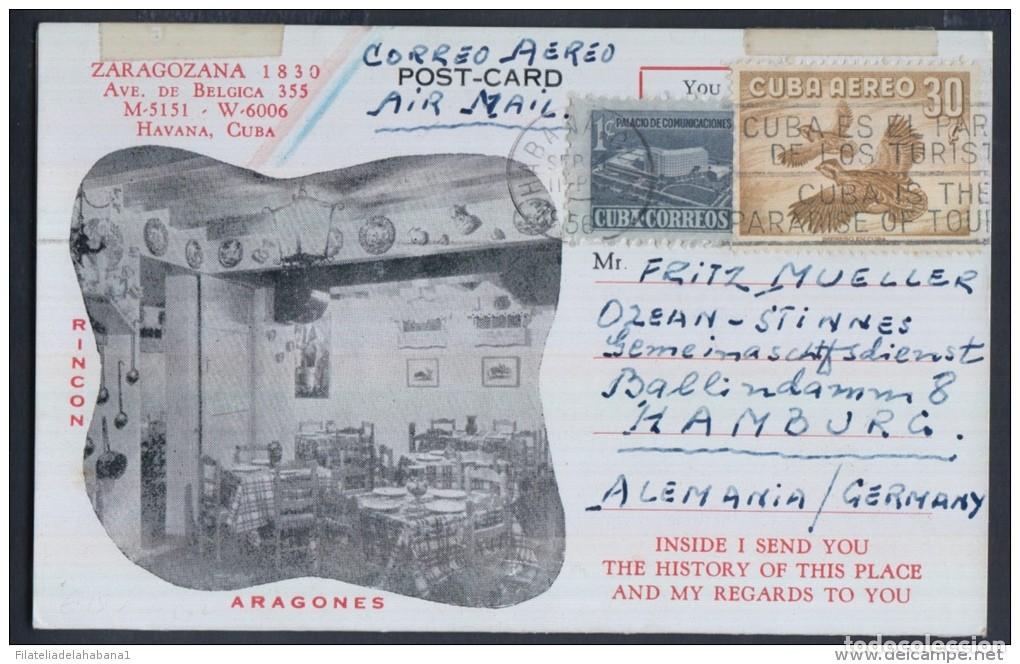 ZARAGOZANA 1830
AVE. DE BELGICA 355
M-5151 - W-6006
HAVANA, CUBA
CORREO AEREO
POST-CARD
AIR MAIL
You
1¢ PALACIO DE COMUNICACIONES
CUBA CORREOS
CUBA AEREO 30
CUBA ES EL PAR
DE LOS TURIST
CUBA IS THE
PARADISE OF TOUR
Mr. FRITZ MUELLER
OZEAN-STINNES
Gemeinaschftsdienst
Ballindamm 8
HAMBURG.
ALEMANIA/GERMANY
RINCON
ARAGONES
INSIDE I SEND YOU
THE HISTORY OF THIS PLACE
AND MY REGARDS TO YOU
Filateliadelahabana1
todocoleccion
www.delcampe.net